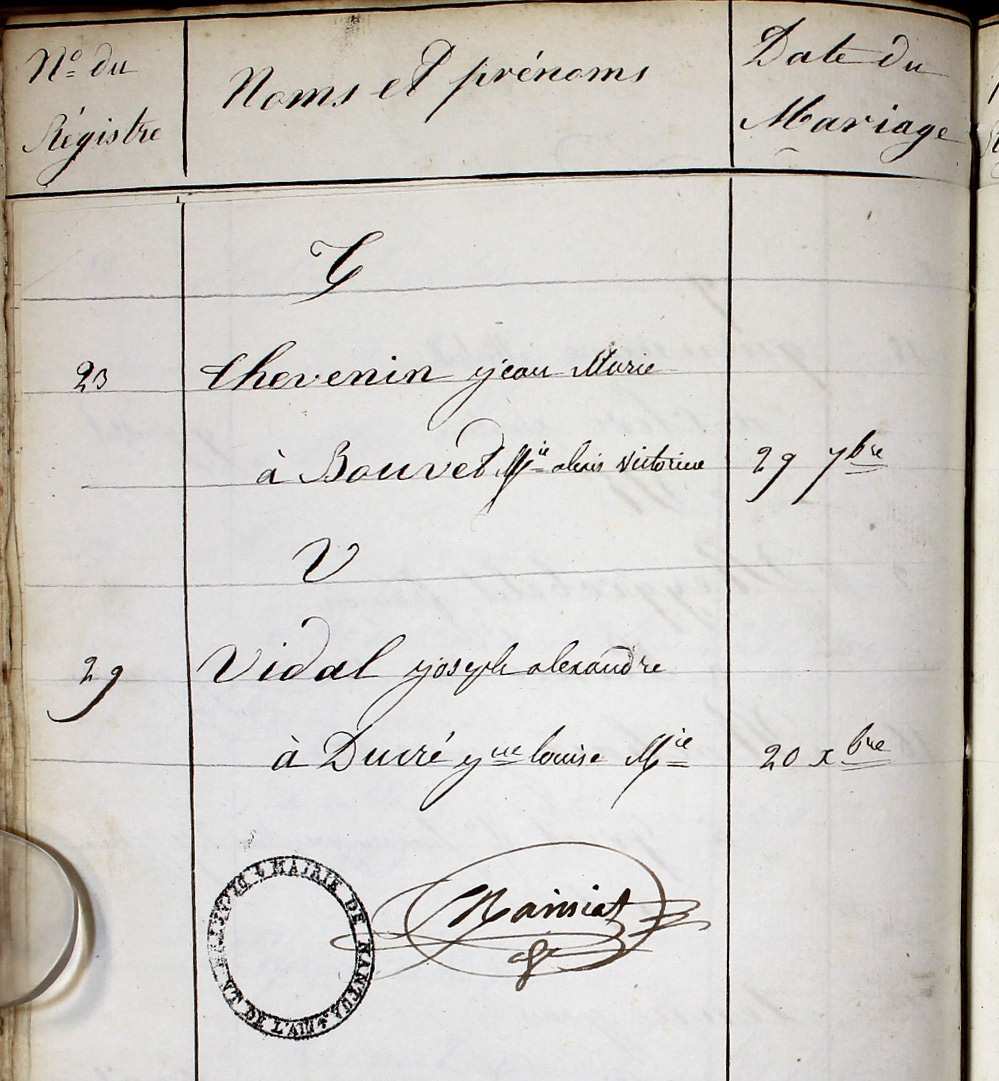 N° du
Régistre
Noms et prénoms
Date du
Mariage
T
23 thevenin jean Marie
à Bouvet Mie alexis victorine 29 7bre
V
29 Vidal joseph alexandre
à Ducré jne louise Mie 20 xbre
MAIRIE DE NANTUA
DE L'AIN